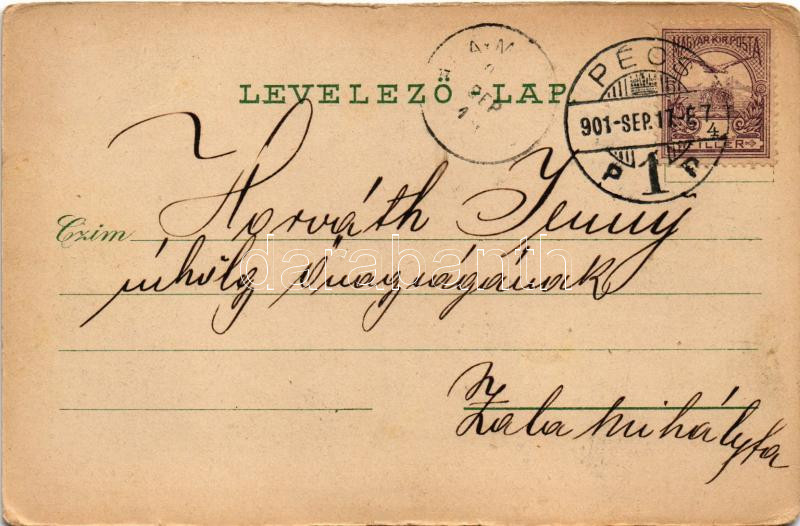 LEVELEZŐ LAP
MAGYAR KIR. POSTA
4
FILLER
PÉCS
901-SEP.17-E7
P 1 P
SEP
Czim
Horváth Jenny
úrhölgy Önagságának
Zala mihályfa
darabanth